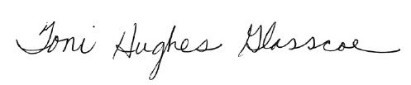 Toni Hughes Glasscoe